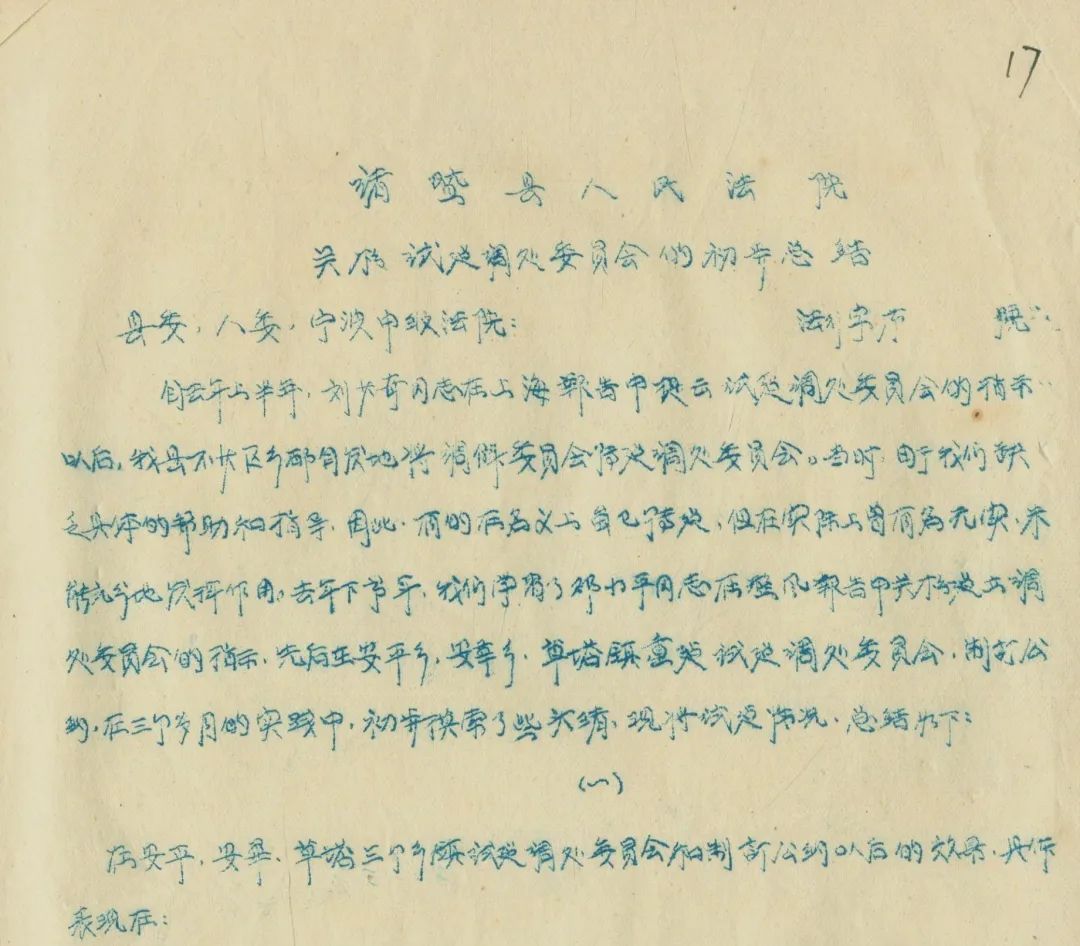 17
诸暨县人民法院
关于试建调处委员会的初步总结
县委、人委、宁波中级法院：　法
自去年上半年，刘少奇同志在上海报告中提出试建调处委员会的指示
以后，我县不少区乡都自发地将调解委员会转建调处委员会。当时由于我们缺
乏具体的帮助和指导，因此，有的在名义上虽已转建，但在实际上有名无实，未
能充分地发挥作用。去年下半年，我们学习了邓小平同志在整风报告中关于建立调
处委员会的指示，先后在安平乡、安华乡、草塔镇重点试建调处委员会，制订公
约，在三个多月的实践中，初步摸索了些头绪，现将试建情况，总结如下：
（一）
在安平、安华、草塔三个乡镇试建调处委员会和制订公约以后的效果，具体
表现在：